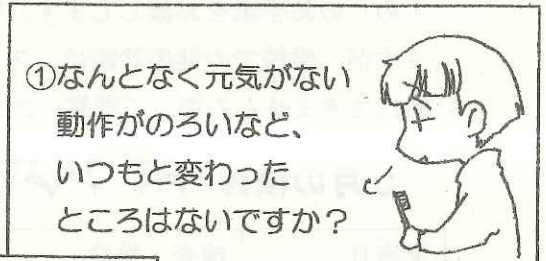 ①なんとなく元気がない
動作がのろいなど、
いつもと変わった
ところはないですか？